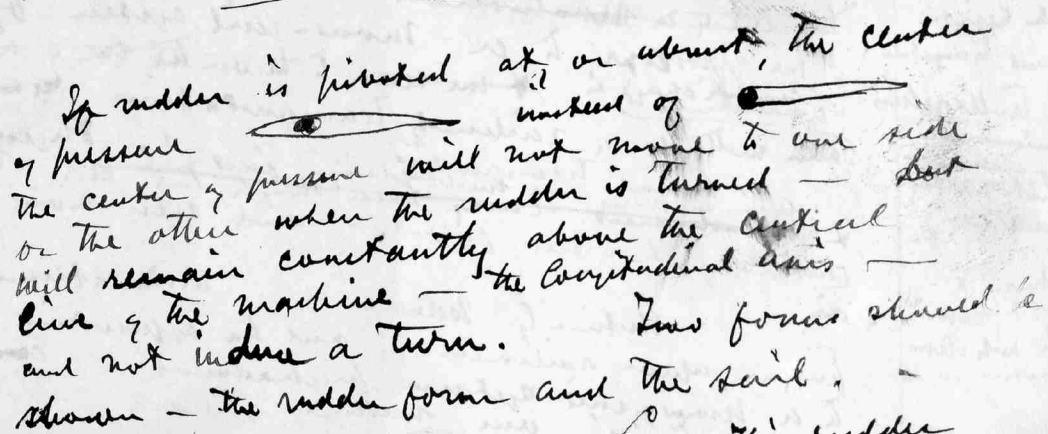 If rudder is pivoted at, or about, the center
of pressure instead of
the center of pressure will not move to one side
or the other when the rudder is turned — but
will remain constantly above the central
line of the machine — the longitudinal axis —
and not induce a turn. Two forms should be
shown — the rudder form and the sail. —
rudder